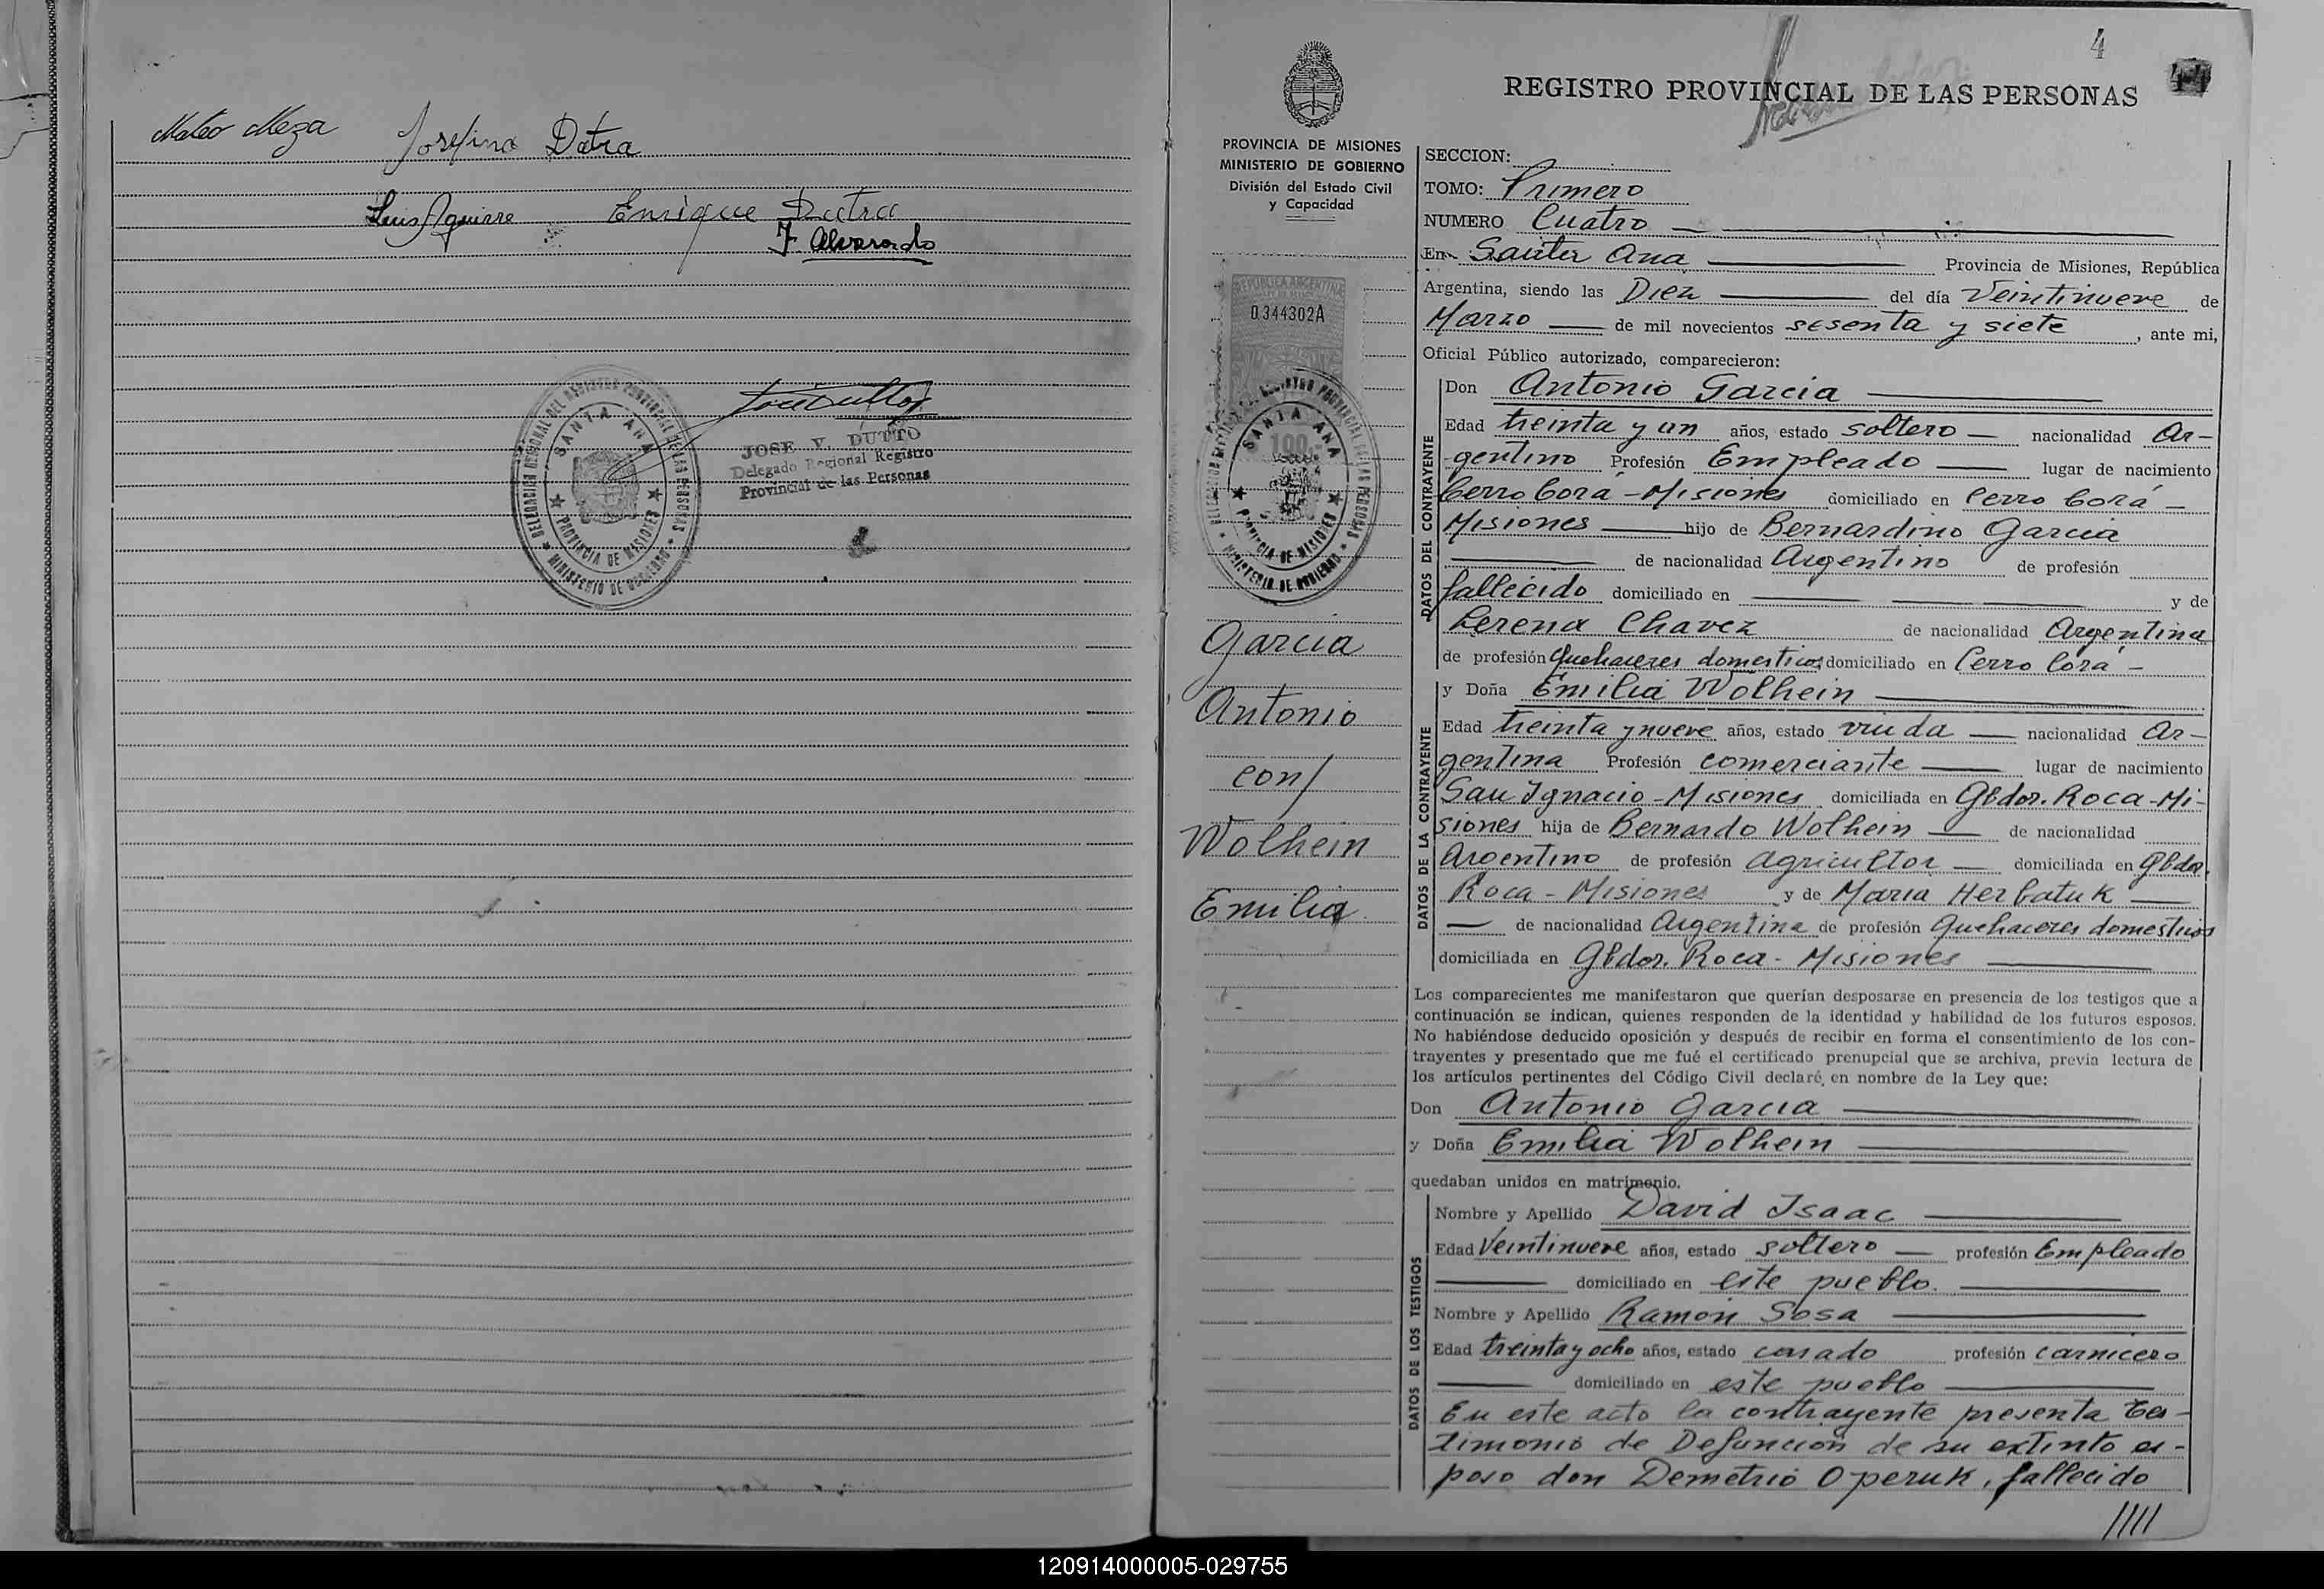 Mateo Meza Josefina Dutra
Luis Aguirre Enrique Dutra
F. Alvarado
DELEGACION REGIONAL DEL REGISTRO PROVINCIAL DE LAS PERSONAS
SANTA ANA
PROVINCIA DE MISIONES
MINISTERIO DE GOBIERNO
JOSE V. DUTTO
Delegado Regional Registro
Provincial de las Personas
4
REGISTRO PROVINCIAL DE LAS PERSONAS
PROVINCIA DE MISIONES
MINISTERIO DE GOBIERNO
División del Estado Civil
y Capacidad
REPUBLICA ARGENTINA
0344302A
100
SANTA ANA
PROVINCIA DE MISIONES
MINISTERIO DE GOBIERNO
Garcia
Antonio
con/
Wolhein
Emilia
SECCION:
TOMO: Primero
NUMERO Cuatro
En Santa Ana Provincia de Misiones, República
Argentina, siendo las Diez del día Veintinueve de
Marzo de mil novecientos sesenta y siete, ante mi,
Oficial Público autorizado, comparecieron:
DATOS DEL CONTRAYENTE
Don Antonio Garcia
Edad treinta y un años, estado soltero nacionalidad Ar-
gentino Profesión Empleado lugar de nacimiento
Cerro Corá - Misiones domiciliado en Cerro Corá -
Misiones hijo de Bernardino Garcia
de nacionalidad Argentino de profesión
fallecido domiciliado en y de
Lerena Chavez de nacionalidad Argentina
de profesión Quehaceres domesticos domiciliado en Cerro Corá -
DATOS DE LA CONTRAYENTE
y Doña Emilia Wolhein
Edad treinta y nueve años, estado viuda nacionalidad Ar-
gentina Profesión comerciante lugar de nacimiento
San Ignacio - Misiones domiciliada en Gbdor. Roca - Mi-
siones hija de Bernardo Wolhein de nacionalidad
Argentino de profesión agricultor domiciliada en Gbdor.
Roca - Misiones y de Maria Herbatuk
de nacionalidad Argentina de profesión Quehaceres domesticos
domiciliada en Gbdor. Roca - Misiones
Los comparecientes me manifestaron que querían desposarse en presencia de los testigos que a
continuación se indican, quienes responden de la identidad y habilidad de los futuros esposos.
No habiéndose deducido oposición y después de recibir en forma el consentimiento de los con-
trayentes y presentado que me fué el certificado prenupcial que se archiva, previa lectura de
los artículos pertinentes del Código Civil declaré, en nombre de la Ley que:
Don Antonio Garcia
y Doña Emilia Wolhein
quedaban unidos en matrimonio.
DATOS DE LOS TESTIGOS
Nombre y Apellido David Isaac
Edad Veintinueve años, estado soltero profesión Empleado
domiciliado en este pueblo.
Nombre y Apellido Ramón Sosa
Edad treinta y ocho años, estado casado profesión carnicero
domiciliado en este pueblo
En este acto la contrayente presenta tes-
timonio de Defunción de su extinto es-
poso don Demetrio Operuk, fallecido
////
120914000005-029755